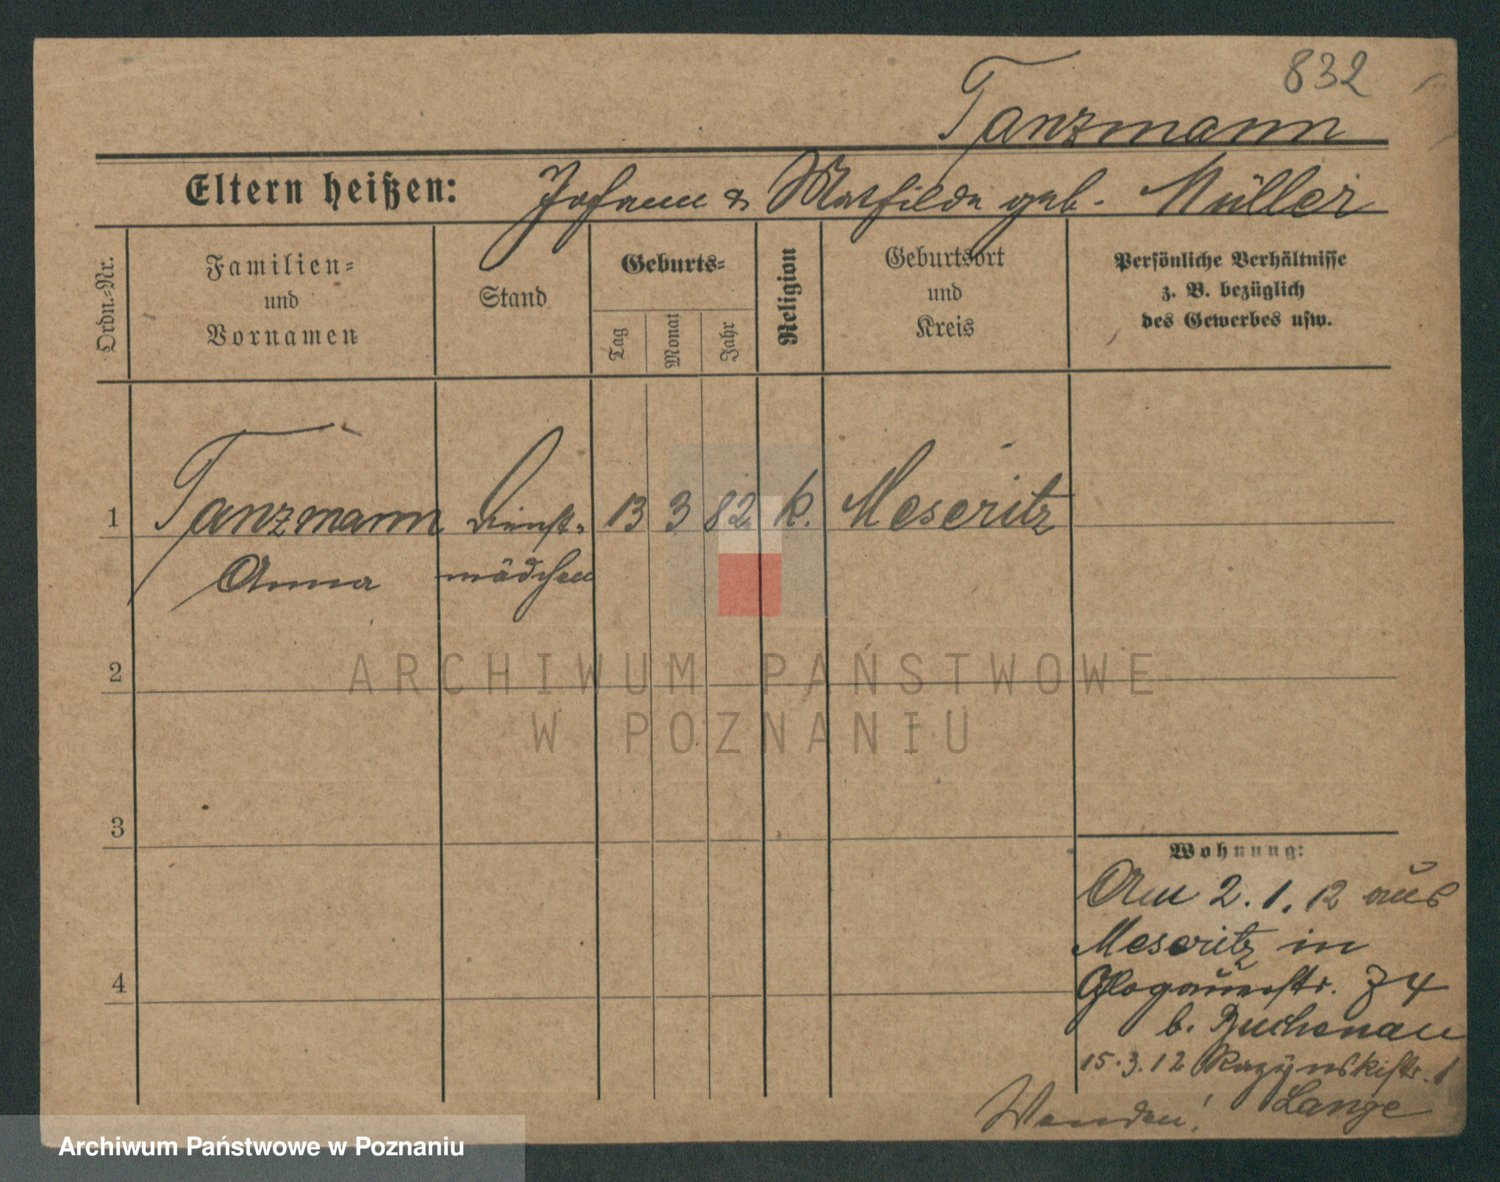 832
Tanzmann
Eltern heißen: Johann & Mathilde geb. Müller
Ordn.-Nr.
Familien- und Vornamen
Stand
Geburts-
Tag
Monat
Jahr
Religion
Geburtsort und Kreis
Persönliche Verhältnisse
z. B. bezüglich
des Gewerbes usw.
1 Tanzmann Dienst- 13 3 82 k. Meseritz
Anna mädchen
2
3
4
Wohnung:
Am 2. 1. 12 aus
Meseritz in
Glogauerstr. 74
b. Buchenau
15.3.12 Razynskistr. 1
Lange
Wenden!
ARCHIWUM PAŃSTWOWE
W POZNANIU
Archiwum Państwowe w Poznaniu